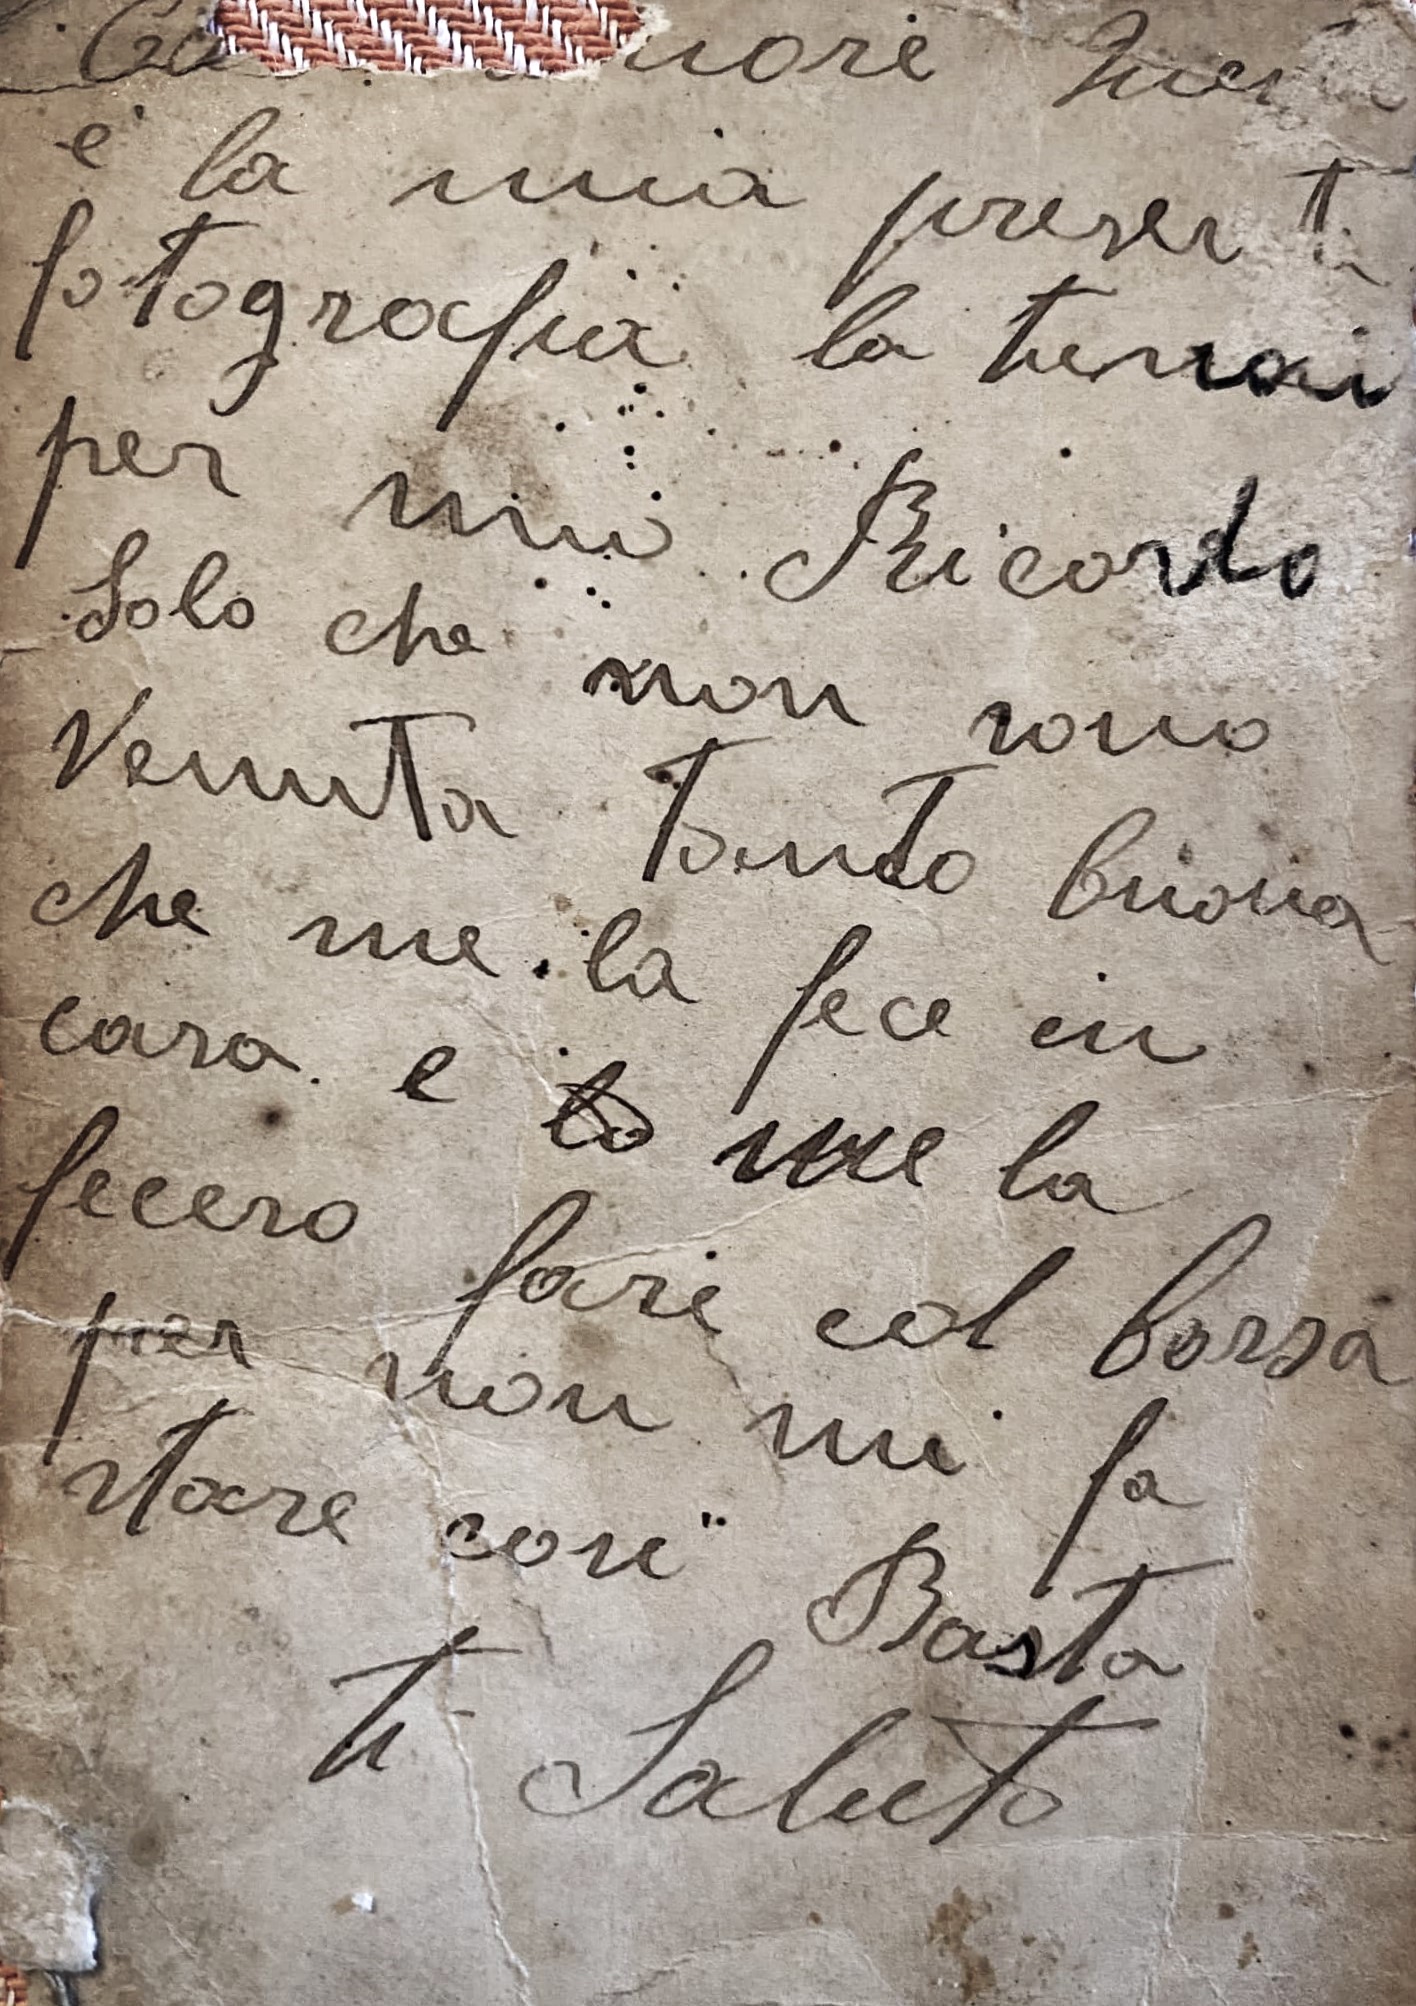 è la mia presenta
fotografia la tienai
per mio Ricordo
Solo che non sono
Venuta Tanto buona
che me la fece in
casa e me la
fecero fare col borsa
per non mi fa
stare cosi Basta
ti Saluto